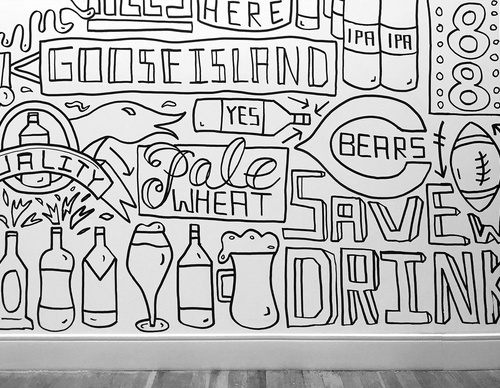 HERE
IPA IPA
GOOSE ISLAND
88
YES
BEARS
QUALITY
Pale
WHEAT
SAVE
DRINK